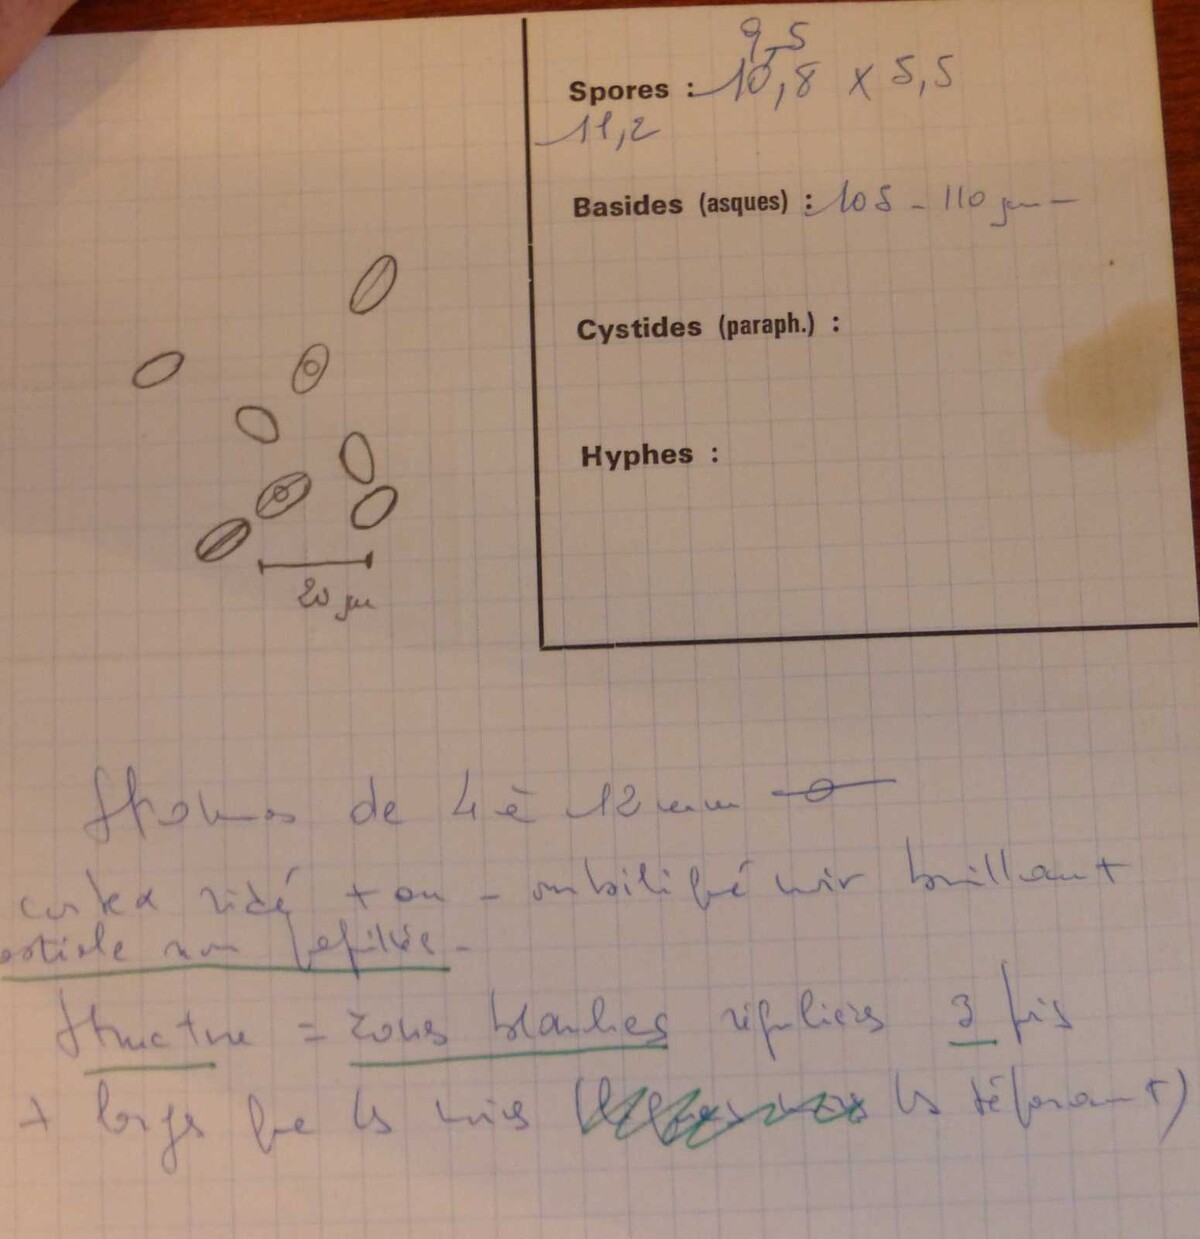 9,5
Spores : 10,8 x 5,5
11,2
Basides (asques) : 105 - 110 µm
Cystides (paraph.) :
Hyphes :
20 µm
Stromas de 4 à 12 mm
cortex ridé + ou - ombiliqué noir brillant
ostiole non papillée -
Structure = zones blanches régulières 3 fois
+ larges que les noires ( les séparant)